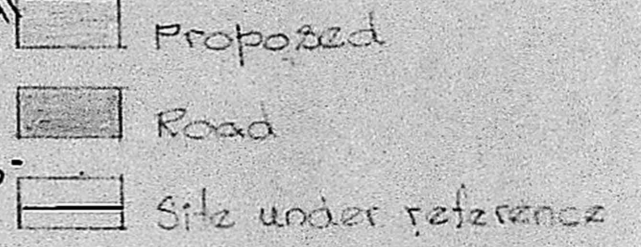 Proposed
Road
Site under reference